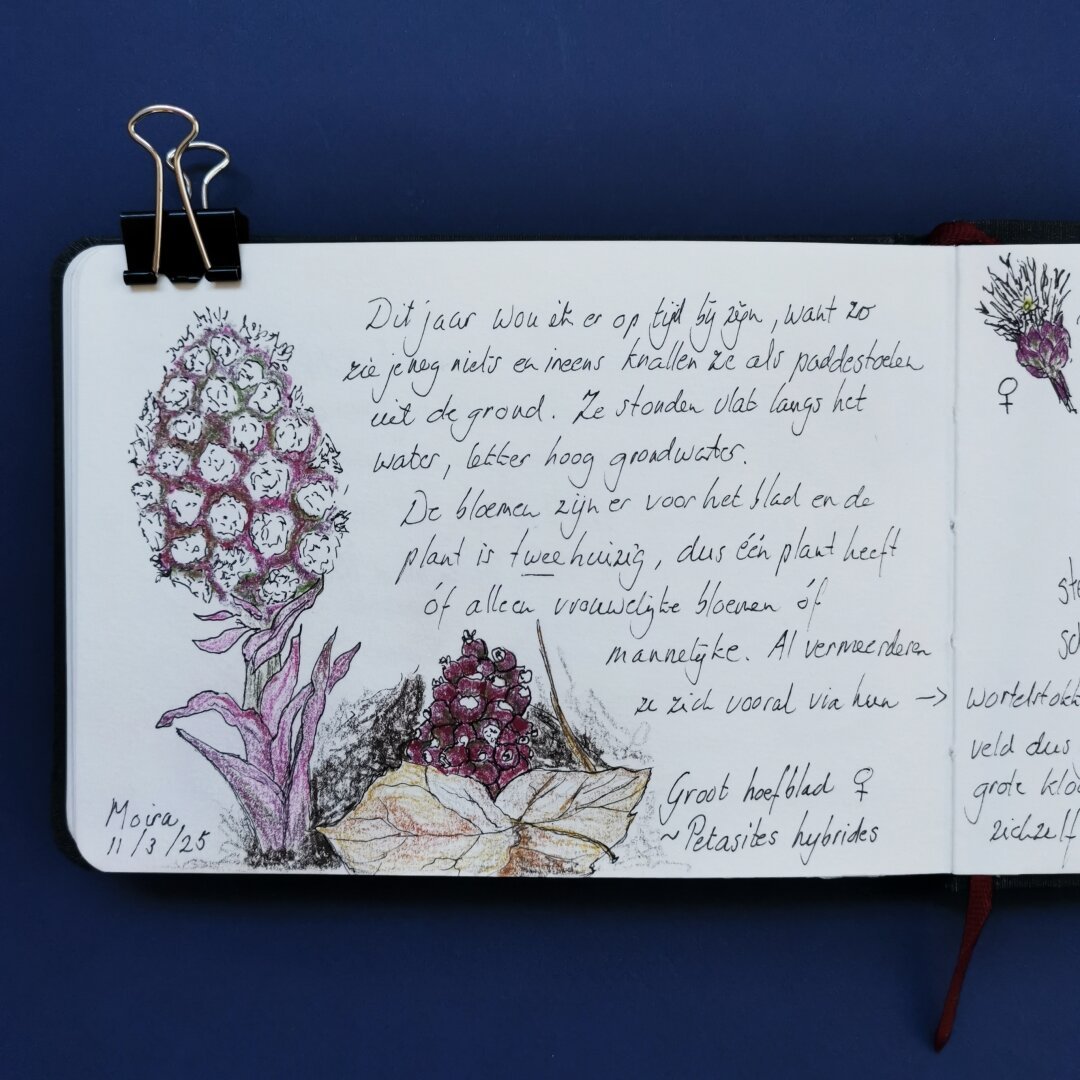 Dit jaar wou ik er op tijd bij zijn, want zo
zie je nog niets en ineens knallen ze als paddestoelen
uit de grond. Ze stonden vlak langs het
water, lekker hoog grondwater.
De bloemen zijn er voor het blad en de
plant is tweehuizig, dus één plant heeft
óf alleen vrouwelijke bloemen óf
mannelijke. Al vermeerderen
ze zich vooral via hun →
Groot hoefblad ♀
~ Petasites hybrides
Moira
11/3/25
♀
veld dus
grote
zichzelf